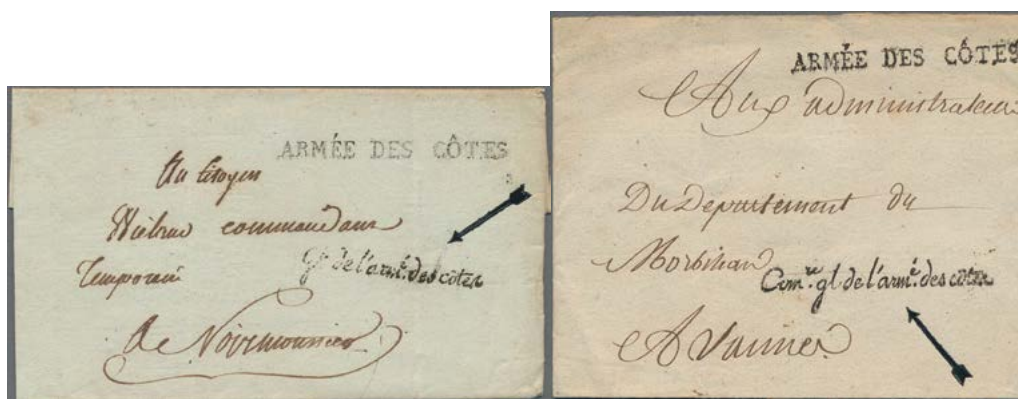 ARMÉE DES CÔTES
Au Citoyen
commandant
Temporaire
Gl de l'armé. des côtes
de Noirmoutier
ARMÉE DES CÔTES
Aux administrateurs
Du Departement du
Morbihan
Comre. gl de l'armé. des côtes
A Vannes